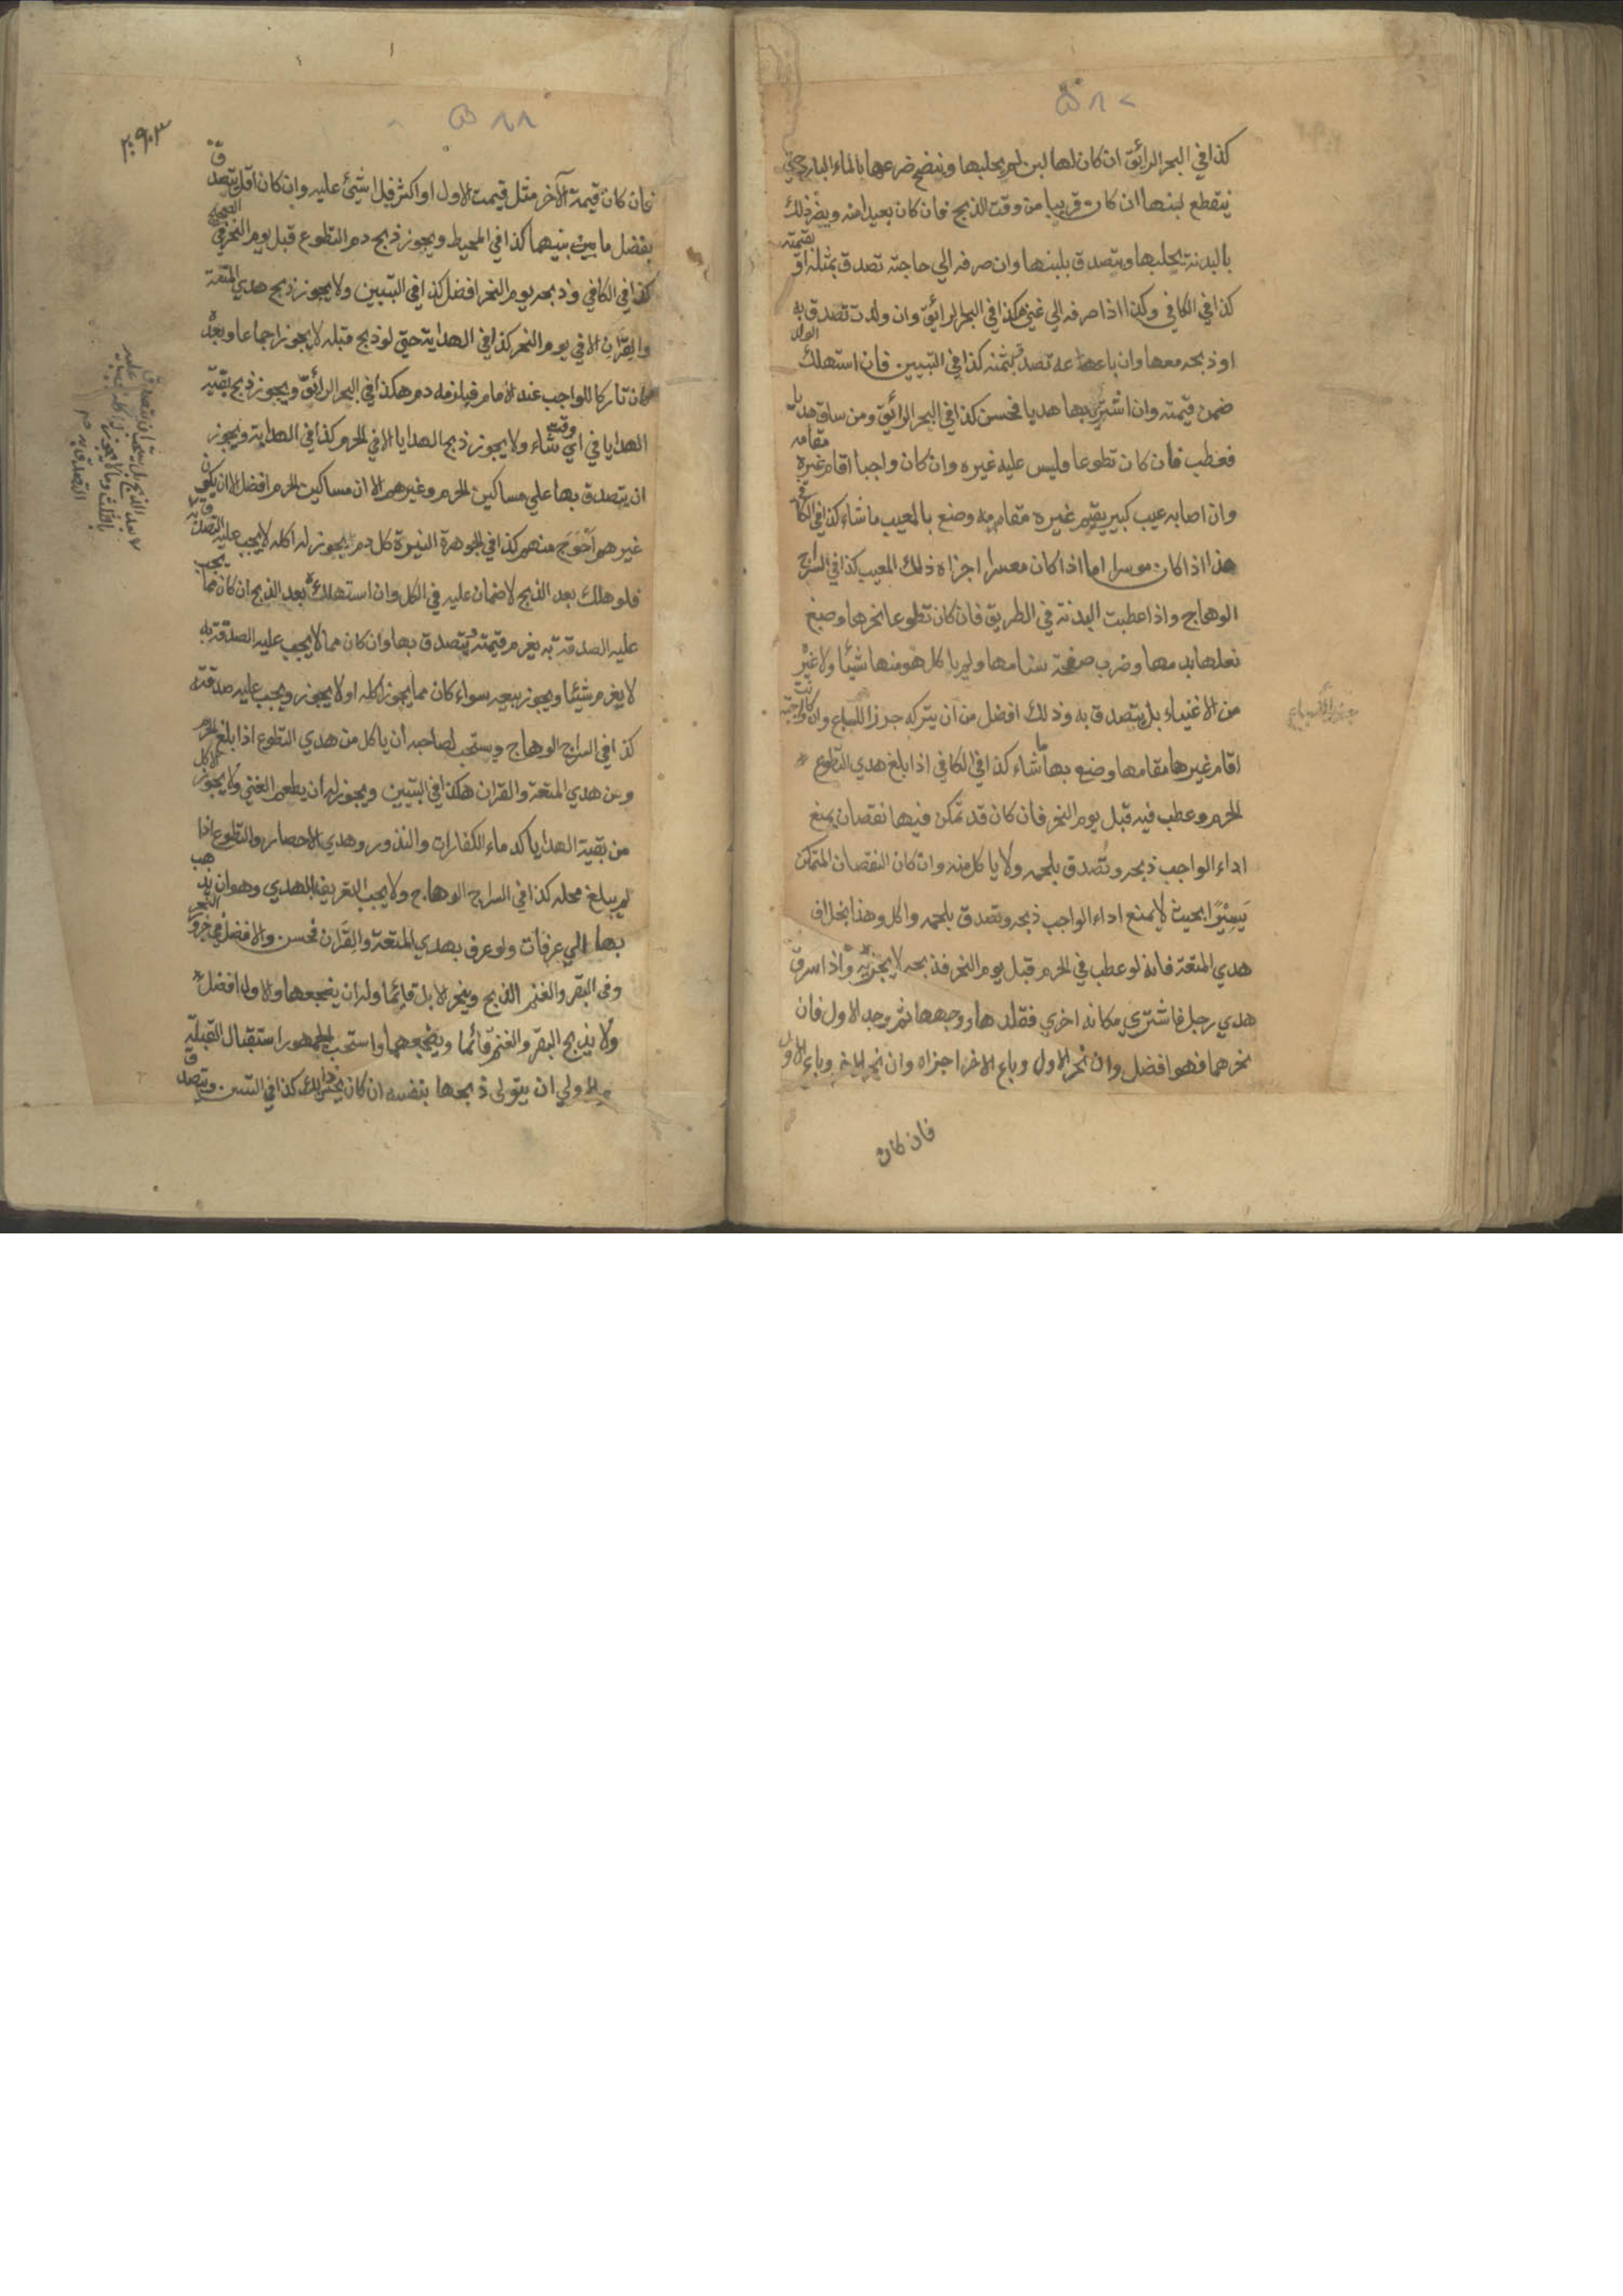 ٥٨٧
كذا في البحر الرائق ان كان لها لبن لم يحلبها وينضح ضرعها بالماء البارد حتى
ينقطع لبنها ان كان قريبا من وقت الذبح فان كان بعيدا منه ويضر ذلك
بالبدنة يحلبها ويتصدق بلبنها وان صرفه الي حاجته تصدق بمثله او بقيمته
كذا في الكافي وكذا اذا صرفه الي غني هكذا في البحر الرائق وان ولدت تصدق به
او ذبحه معها وان باعه تصدق بثمنه كذا في التبيين فان استهلك الولد
ضمن قيمته وان اشتري بها هديا فحسن كذا في البحر الرائق ومن ساق هديا
فعطب فان كان تطوعا فليس عليه غيره وان كان واجبا اقام غيره مقامه
وان اصابه عيب كبير يقيم غيره مقامه وصنع بالمعيب ما شاء كذا في الكافي
هذا اذا كان موسرا اما اذا كان معسرا اجزاه ذلك المعيب كذا في السراج
الوهاج واذا عطبت البدنة في الطريق فان كان تطوعا نحرها وصبغ
نعلها بدمها وضرب صفحة سنامها ولم ياكل هو منها شيئا ولا غيره
من الاغنياء بل يتصدق به وذلك افضل من ان يتركه جزرا للسباع وان كانت واجبة
اقام غيرها مقامها وصنع بها ما شاء كذا في الكافي اذا بلغ هدي التطوع
الحرم وعطب فيه قبل يوم النحر فان كان قد تمكن فيها نقصان يمنع
اداء الواجب ذبحه وتصدق بلحمه ولا ياكل منه وان كان النقصان المتمكن
يسيرا بحيث لا يمنع اداء الواجب ذبحه وتصدق بلحمه واكل وهذا بخلاف
هدي المتعة فانه لو عطب في الحرم قبل يوم النحر فذبحه لا يجزيه واذا سرق
هدي رجل فاشتري مكانه اخري فقلدها ووجهها ثم وجد الاول فان
نحرهما فهو افضل وان نحر الاول وباع الاخر اجزاه وان نحر الاخر وباع الاول
فان كان
٥٨٨
فان كان قيمة الآخر مثل قيمت الاول او اكثر فلا شيئ عليه وان كان اقل يتصدق
بفضل ما بين بينهما كذا في المحيط ويجوز ذبح دم التطوع قبل يوم النحر في الصحيح
كذا في الكافي وذبحه يوم النحر افضل كذا في التبيين ولا يجوز ذبح هدي المتعة
والقران الا في يوم النحر كذا في الهداية حتي لو ذبح قبله لا يجوز اجماعا وبعده
كان تاركا للواجب عند الامام فيلزمه دم هكذا في البحر الرائق ويجوز ذبح بقية
الهدايا في اي وقت شاء ولا يجوز ذبح الهدايا الا في الحرم كذا في الهداية ويجوز
ان يتصدق بها علي مساكين الحرم وغيرهم الا ان مساكين الحرم افضل الا ان يكون
غيرهم احوج منهم كذا في الجوهرة النيرة كل دم يجوز له اكله لا يجب عليه التصدق به
فلو هلك بعد الذبح لا ضمان عليه في الكل وان استهلكه بعد الذبح ان كان مما يجب
عليه الصدقة به يغرم قيمته ويتصدق بها وان كان مما لا يجب عليه الصدقة به
لا يغرم شيئا ويجوز بيعه سواء كان مما يجوز اكله او لا يجوز ويجب عليه صدقته
كذا في السراج الوهاج ويستحب لصاحبه أن ياكل من هدي التطوع اذا بلغ الحرم
ومن هدي المتعة والقران هكذا في التبيين ويجوز له أن يطعم الغني ولا يجوز الاكل
من بقية الهدايا كدماء الكفارات والنذور وهدي الاحصار والتطوع اذا
لم يبلغ محله كذا في السراج الوهاج ولا يجب التعريف بالهدي وهو ان يذهب
بها الي عرفات ولو عرف بهدي المتعة والقران فحسن والافضل في جزور النحر
وفي البقر والغنم الذبح وينحر الابل قائما وله ان يضجعها والاول افضل
ولا يذبح البقر والغنم قائما ويضجعهما واستحب الجمهور استقبال القبلة
والاولي ان يتولى ذبحها بنفسه ان كان يحسن ذلك كذا في التبيين ويتصدق